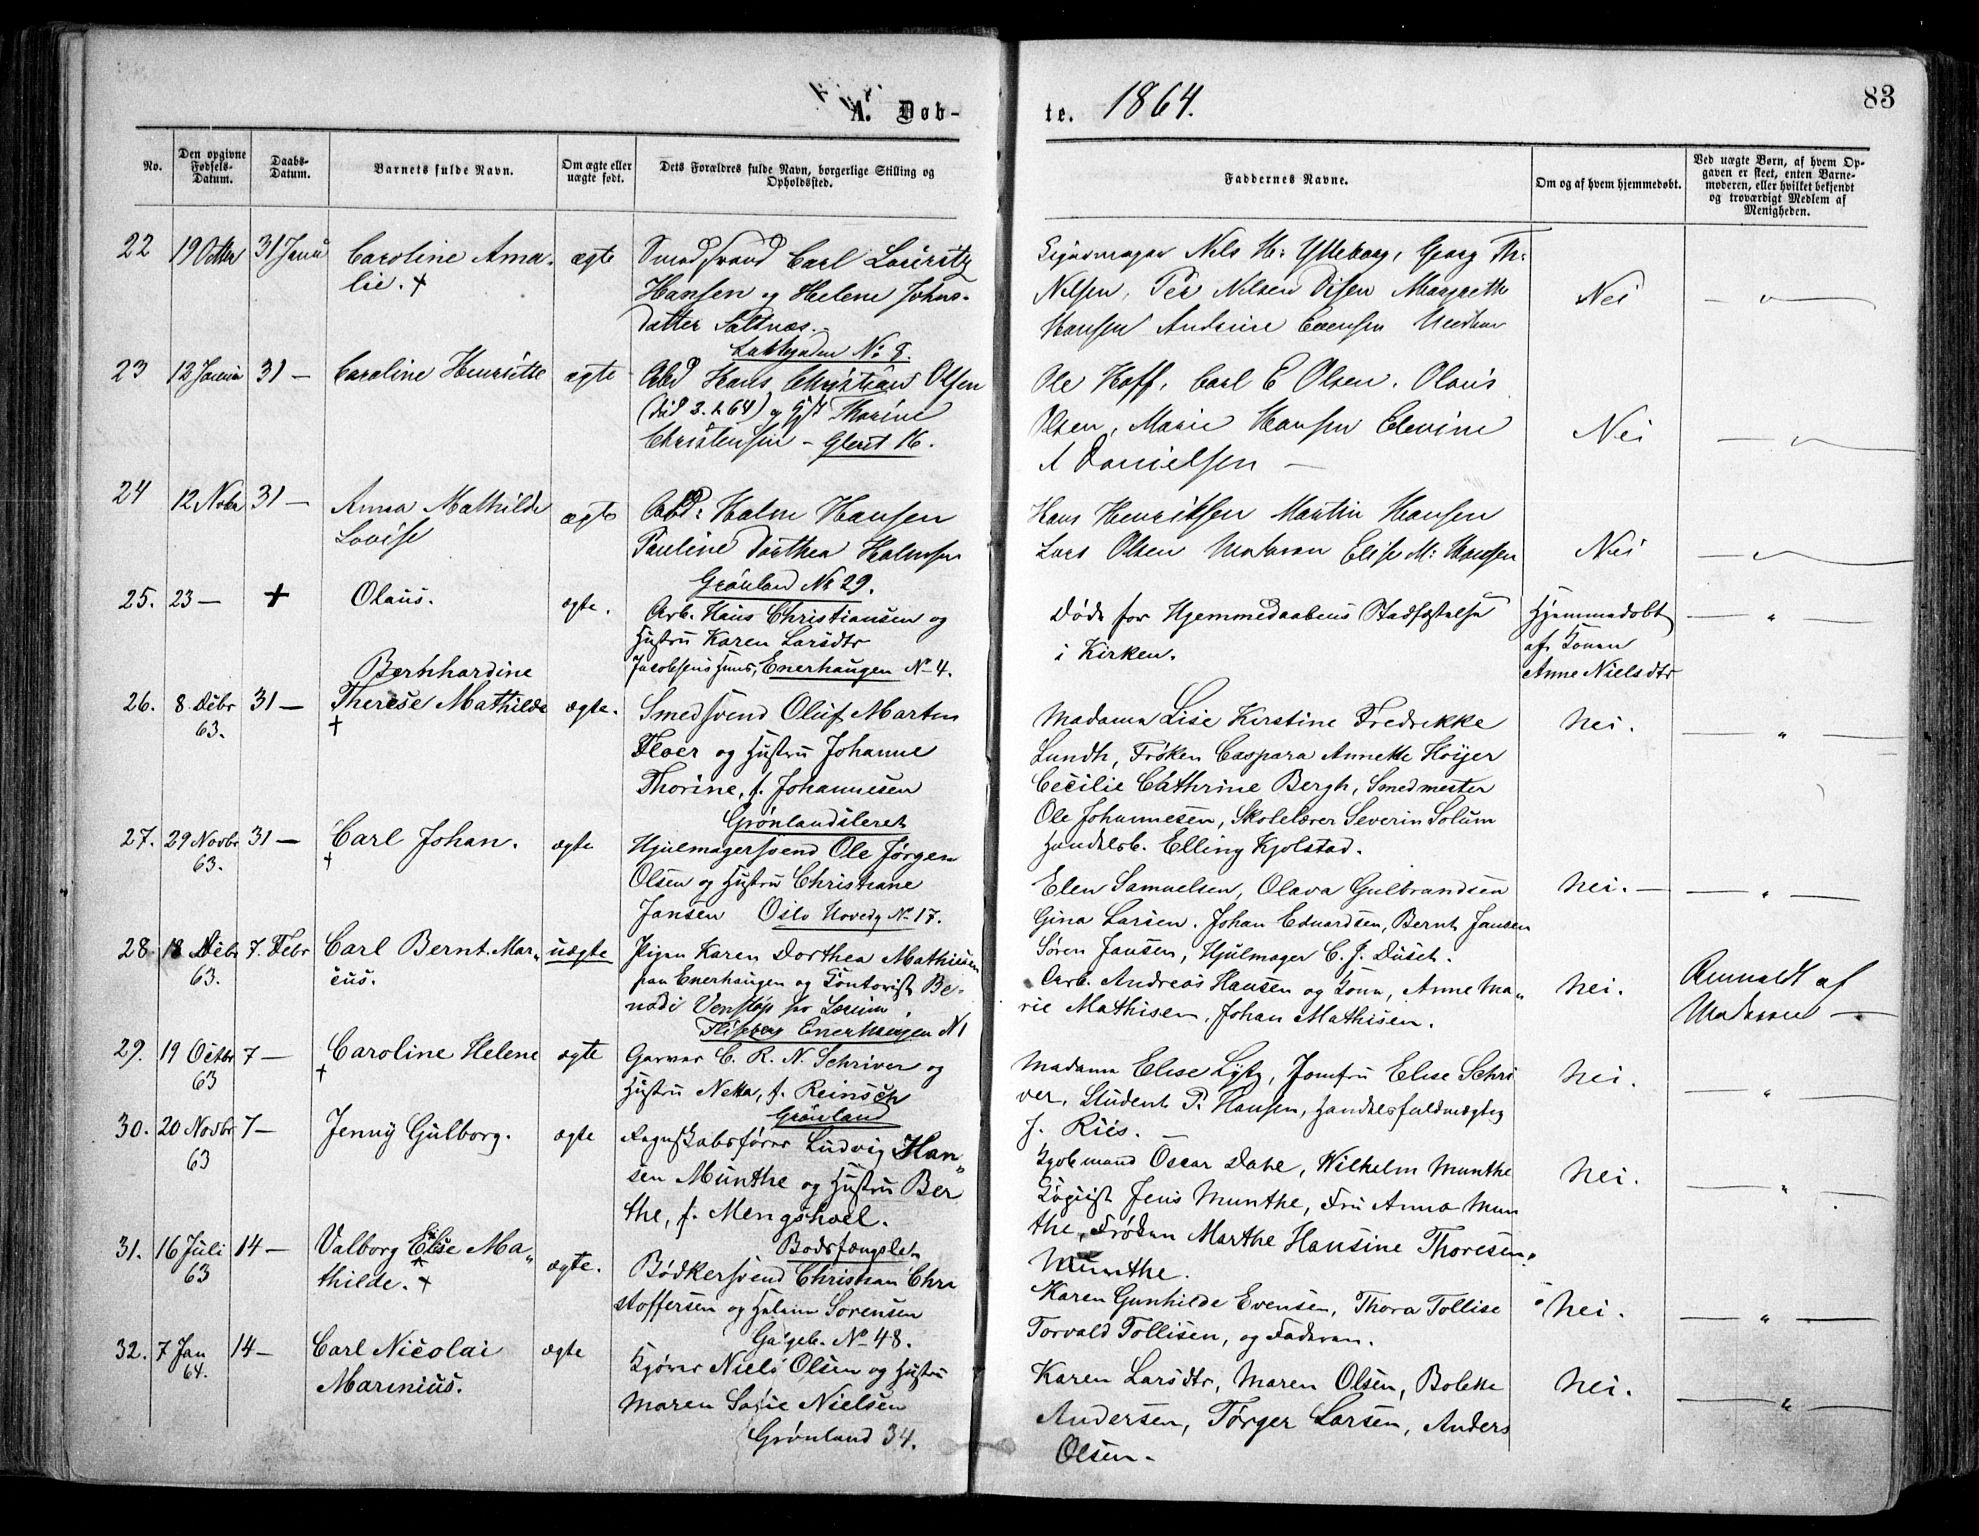 A. Døb-
te. 1864.
83
No.
Den opgivne Fødsels-Datum.
Daabs-Datum.
Barnets fulde Navn.
Om ægte eller uægte født.
Dets Forældres fulde Navn, borgerlige Stilling og Opholdssted.
Faddernes Navne.
Om og af hvem hjemmedøbt.
Ved uægte Børn, af hvem Op-
gaven er skeet, enten Barne-
moderen, eller hvilket bekjendt
og troværdigt Medlem af
Menigheden.
22 19 Octbr 31 Janu Caroline Ama- ægte Smedsvend Carl Lauritz
lie. + Hansen og Helene Johns-
datter Saltnæs.
Nels H: Ytteborg, Georg Th: Nei
Nilsen, Per Nilsen Disen Margrethe
Hansen Andrine Evensen
No 8.
23 12 Januar 31 — Caroline Henriette ægte Abd Hans Christian Olsen
(død 2.1.64) og Gift Thorine
Christensen - Gleret 16.
Ole Hoff, Carl E Olsen. Olaus Nei
Olsen, Marie Hansen Elevine
A Danielsen —
24 12 Novbr 31 — Anna Mathilde ægte Abd: Halm Hansen
Lovise Pauline Dorthea Halmsen
Grønland No 29.
Hans Henriksen Martin Hansen Nei
Lars Olsen Moderen Elise M: Hansen
25. 23 — + Olaus. ægte. Arb. Hans Christiansen og
Hustru Karen Larsdtr
Jacobsens Huus, Enerhaugen No 4.
Døde før Hjemmedaabens Stadfæstelse Hjemmedøbt
i Kirken. af Konen
Anne Nielsdtr
Bernhardine
26. 8 Debr 31 — Therese Mathilde ægte. Smedsvend Oluf Martin
63. + Floer og Hustru Johanne
Thorine, f. Johannesen
Grønlandsleret
Madame Lise Kirstine Fredrikke Nei.
Lundh, Frøken Caspara Annette Høyer
Cecilie Cathrine Bergh, Smedmester
Ole Johannesen, Skolelærer Severin Solum
Handelsb. Elling Kjolstad.
27. 29 Novbr 31 — Carl Johan. ægte Hjulmagersvend Ole Jørgen
63. + Olsen og Hustru Christiane
Jansen Oslo Hovedg No 17.
Elen Samuelsen, Olava Gulbrandsen Nei. —
Gina Larsen. Johan Eduardsen, Bernt Jansen
Søren Jansen, Hjulmager C. J. Duset.
28 18 Debr 7. Febr Carl Bernt Mar- uægte Pigen Karen Dorthea Mathisen
63. cus. paa Enerhaugen og Contorist Be-
nadi Venstøp
Enerhaugen N 1
Arb. Andreas Hansen og Kone, Anne Ma- Nei. Anmeldt af
rie Mathisen, Johan Mathisen. Moderen —
29. 19 Octbr 7 — Caroline Helene ægte Garver C. R. N. Schriver og
63 + Hustru Netta, f. Reinsch
Grønland
Madame Elise Lytz, Jomfru Elise Schri Nei.
ver, Student P. Hansen, Handelsfuldmægtig
J. Riis.
30. 20 Novbr 7 — Jenny Gulborg. ægte Regnskabsfører Ludvig Han-
63 sen Munthe og Hustru Ber
the, f. Mengshoel.
Bodsfængslet
Kjøbmand Oscar Dahl, Wilhelm Munthe Nei.
Jens Munthe, Fru Anna Mun
the, Frøken Marthe Hansine Thoresen
Munthe.
31. 16 Juli 14 — Valborg Elise Ma- ægte. Bødkersvend Christian Chri
63 thilde. + stoffersen og Helene Sørensen
No 48.
Karen Gunhilde Evensen, Thora Tollise Nei.
Torvald Tollisen, og Faderen.
32. 7 Jan 14 — Carl Nicolai ægte Kjører Niels Olsen og Hustru
64. Marinius. Maren Sofie Nielsen
Grønland 34.
Karen Larsdtr, Maren Olsen, Bolette Nei.
Andersen, Tørger Larsen, Anders
Olsen.